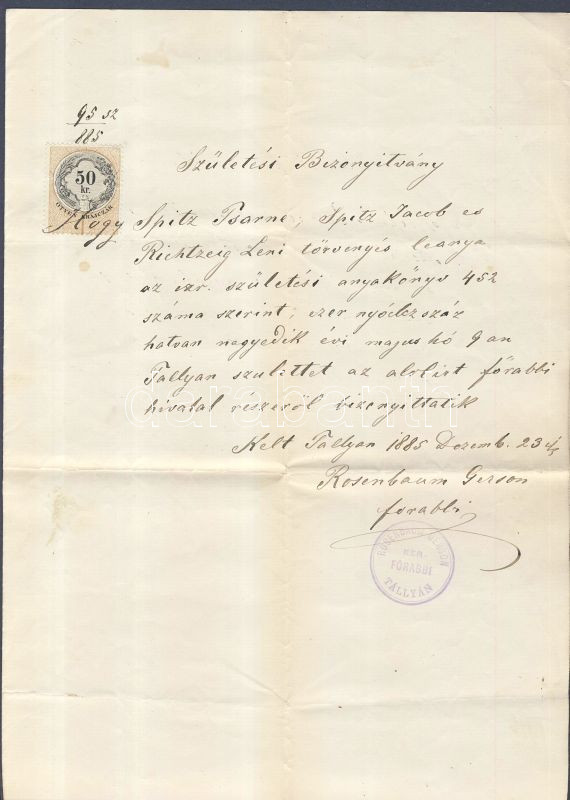 95 sz
885
50
kr.
ÖTVEN KRAJCZÁR
Születési Bizonyitvány
Hogy Spitz Barne, Spitz Jacob es
Richtzeig Leni törvenyés leanya
az izr. születési anyakönyv 452
száma szerint, ezer nyólczszáz
hatvan nagyedik évi majus hó 9-an
Tallyan szulettet az alolirt főrabbi
hivatal részeröl bizonyittatik
Kelt Tallyan 1885 Dezemb. 23
Rosenbaum Gerson
forabbi
ROSENBAUM GERSON
KER.
FŐRABBI
TÁLLYÁN
darabanth